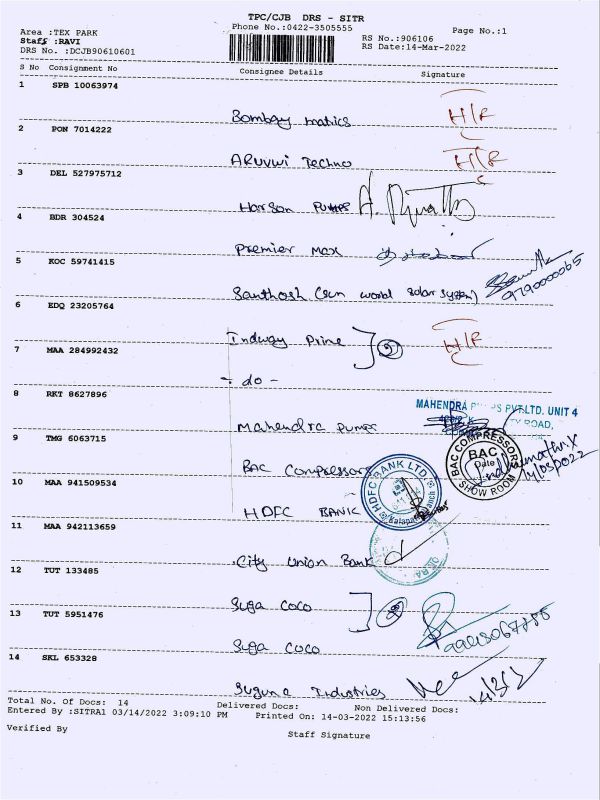 TPC/CJB DRS - SITR
Phone No.:0422-3505555
Area :TEX PARK
Staff :RAVI
DRS No. :DCJB90610601
RS No.:906106
RS Date:14-Mar-2022
Page No.:1
S No Consignment No Consignee Details Signature
1 SPB 10063974
Bombay matics H/R
2 PON 7014222
Aruvwi Techno H/R
3 DEL 527975712
Harson Pumps
4 BDR 304524
Premier Max
5 KOC 59741415
Santhosh (sun world solar system) 9790000065
6 EDQ 23205764
Indway Prine 2 H/R
7 MAA 284992432
- do -
8 RKT 8627896
Mahendra Pumps
MAHENDRA PVT.LTD. UNIT 4
ROAD,
9 TMG 6063715
BAC Compressors
BAC COMPRESSORS
BAC
Date
SHOW ROOM
10 MAA 941509534
HDFC BANK
HDFC BANK LTD.
11 MAA 942113659
City Union Bank
12 TUT 133485
Suga Coco 2
13 TUT 5951476
Suga Coco
14 SKL 653328
Suguna Industries 14/3/2
Total No. Of Docs: 14 Delivered Docs: Non Delivered Docs:
Entered By :SITRA1 03/14/2022 3:09:10 PM Printed On: 14-03-2022 15:13:56
Verified By
Staff Signature